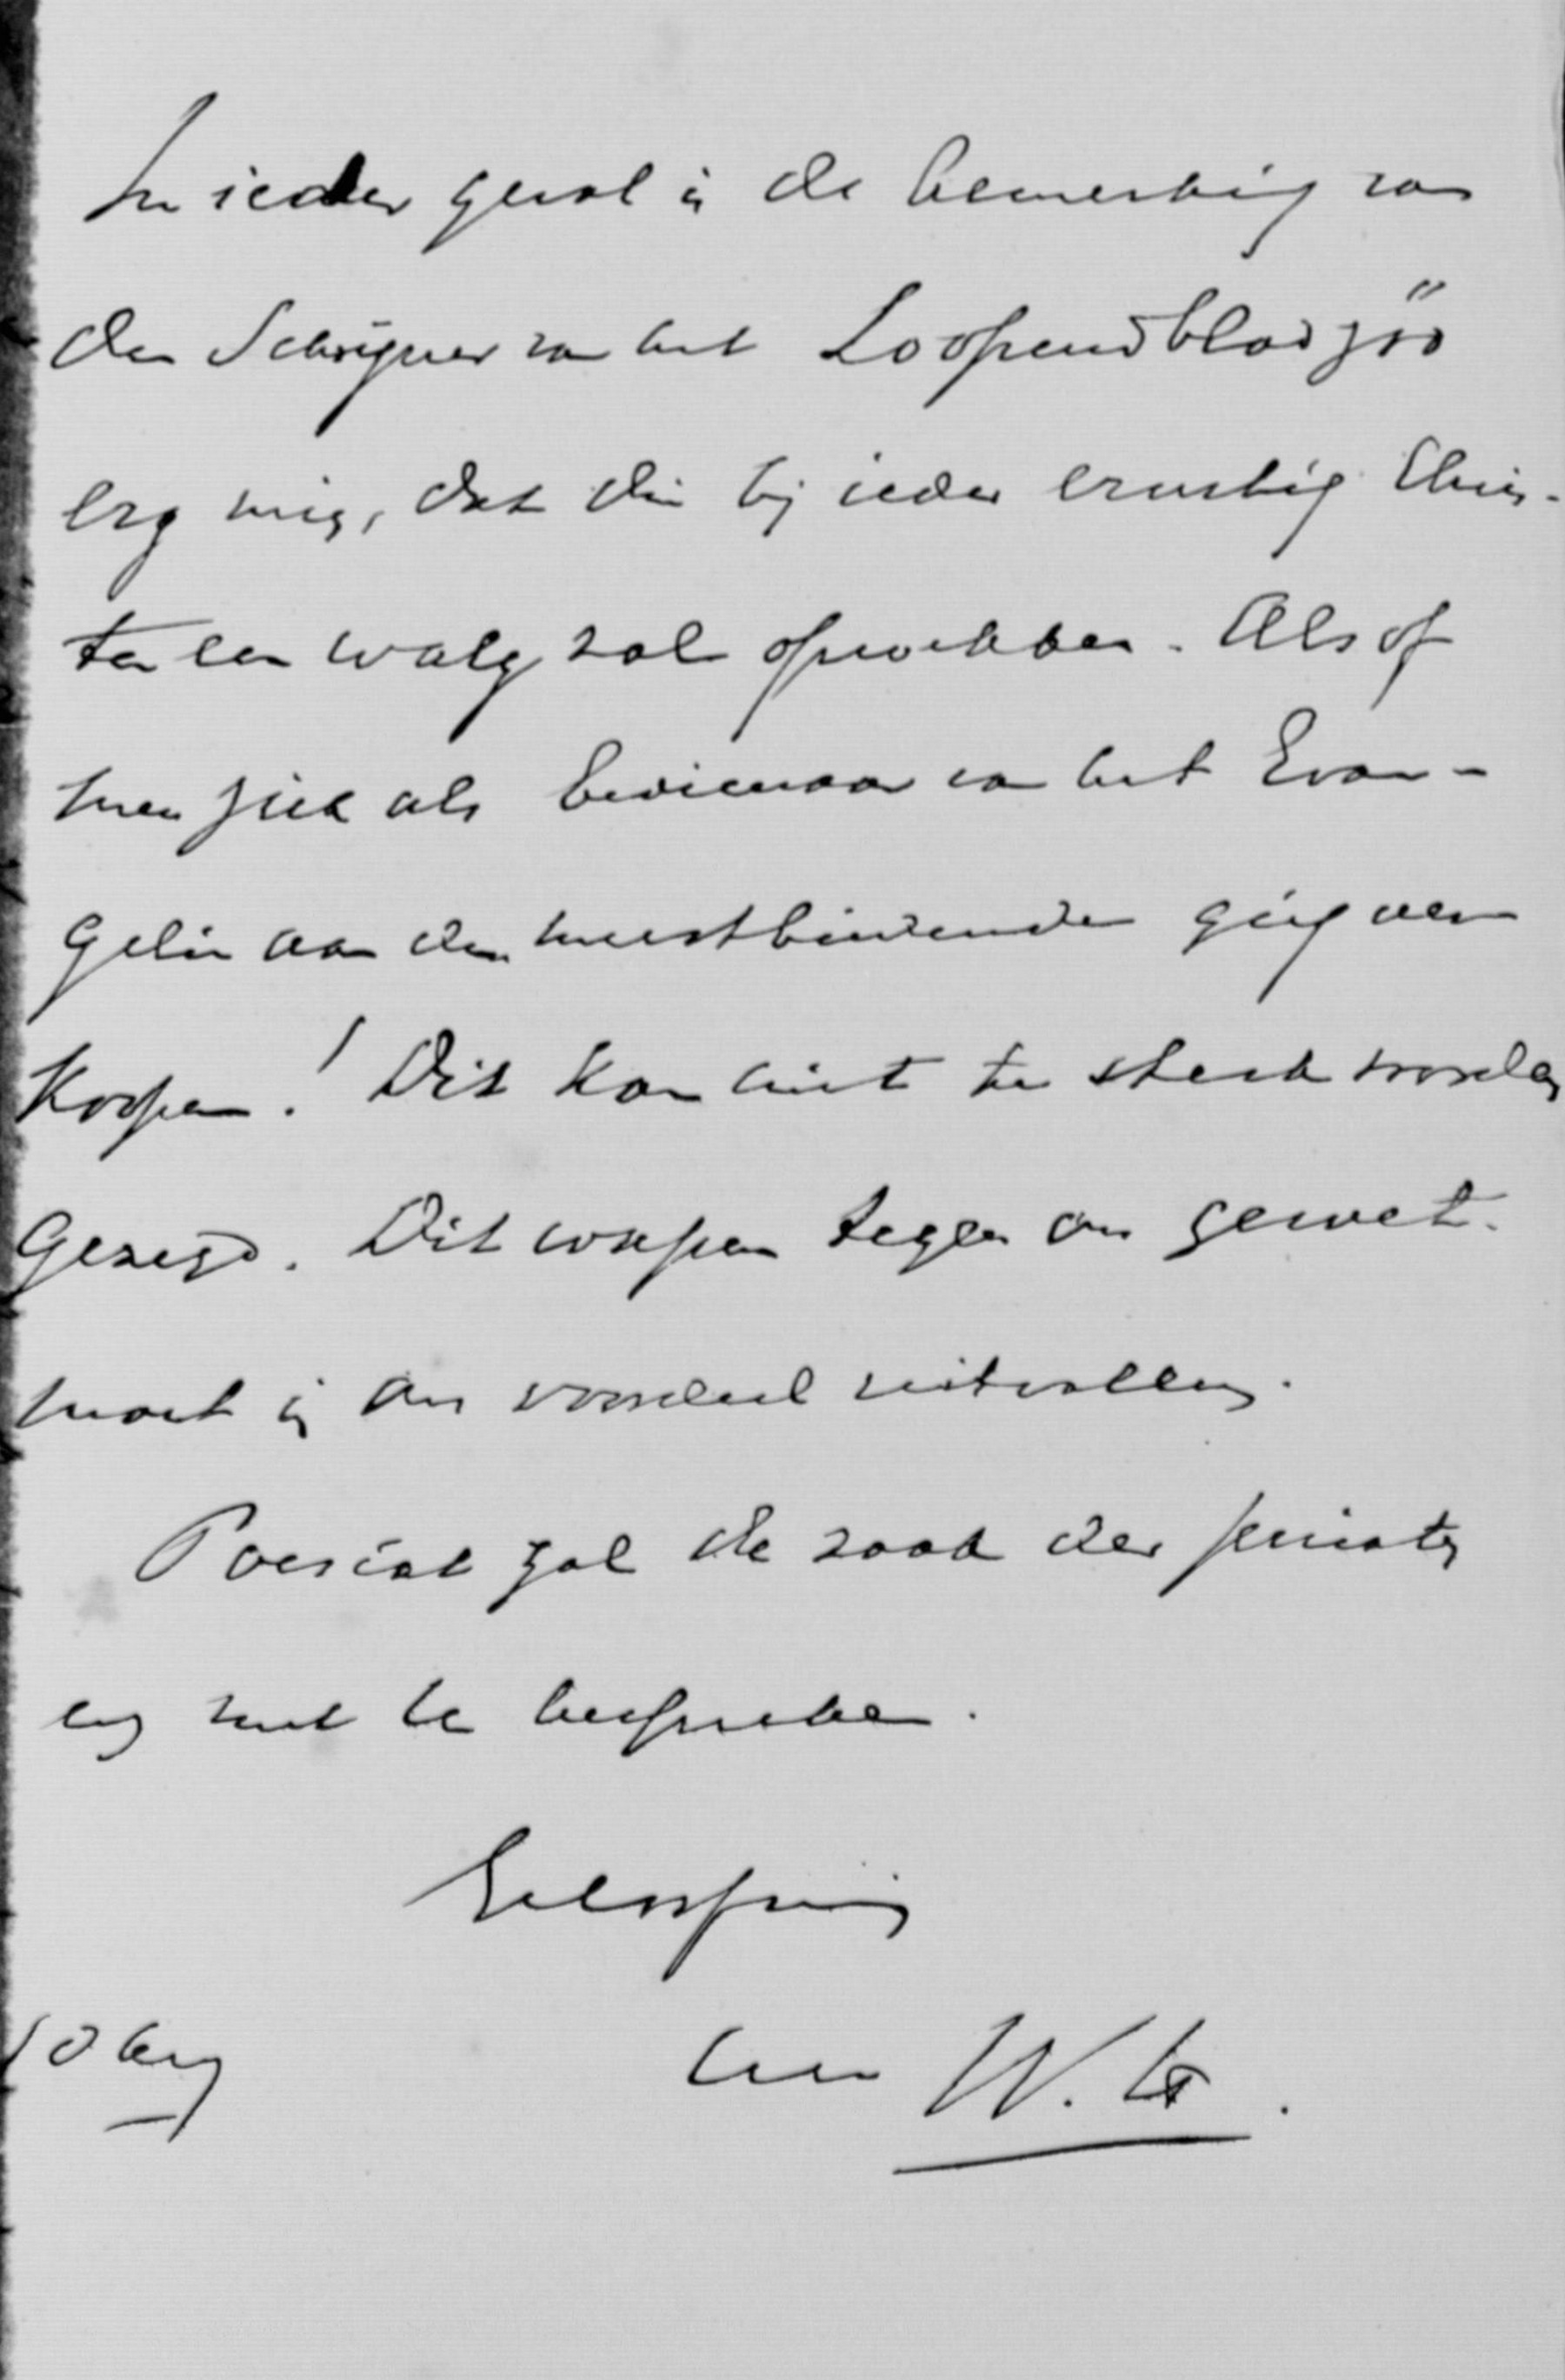 In ieder geval is de bemerking van
den Schrijver van het Loopend blad zóó
erg , dat die bij ieder ernstig Chris-
ten een walg zal opwekken. Alsof
men zich als bedienaar van het Evan-
gelie aan den meestbiedende ging ver
koopen! Dit kan niet te sterk worden
gezegd. Dit wapen tegen ons gewet.
moet in ons voordeel uitvallen.
Poensen zal de zaak der
nog met te bespreken.
Eelhoopig
10 Aug
W. H.